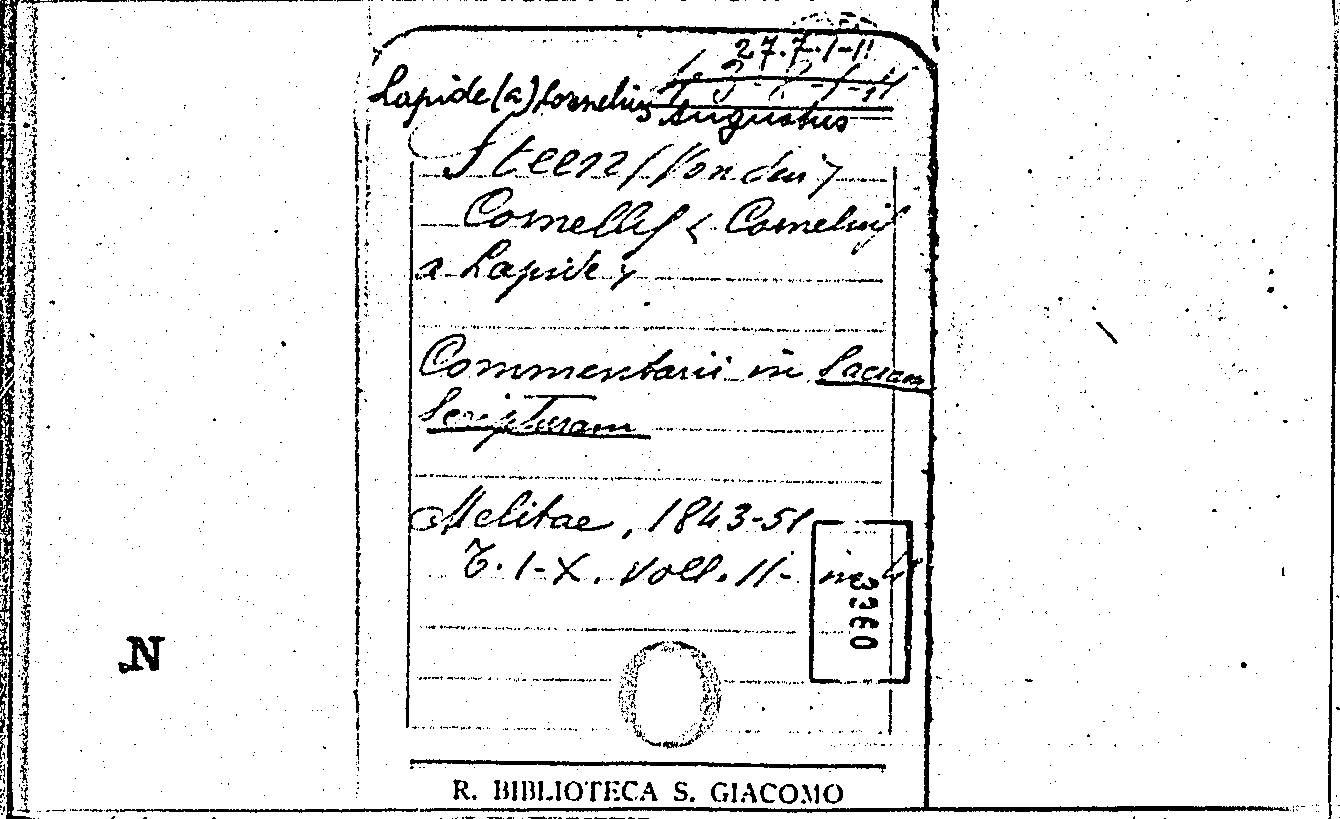 27.7.I-11
Lapide (a) Cornelius
Augustus
Steen (Vonden)
Cornellis < Cornelius
a Lapide >
Commentarii in Sacram
Scripturam
Melitae, 1843-51
T. I-X. voll. 11- in 4°
3360
N
R. BIBLIOTECA S. GIACOMO